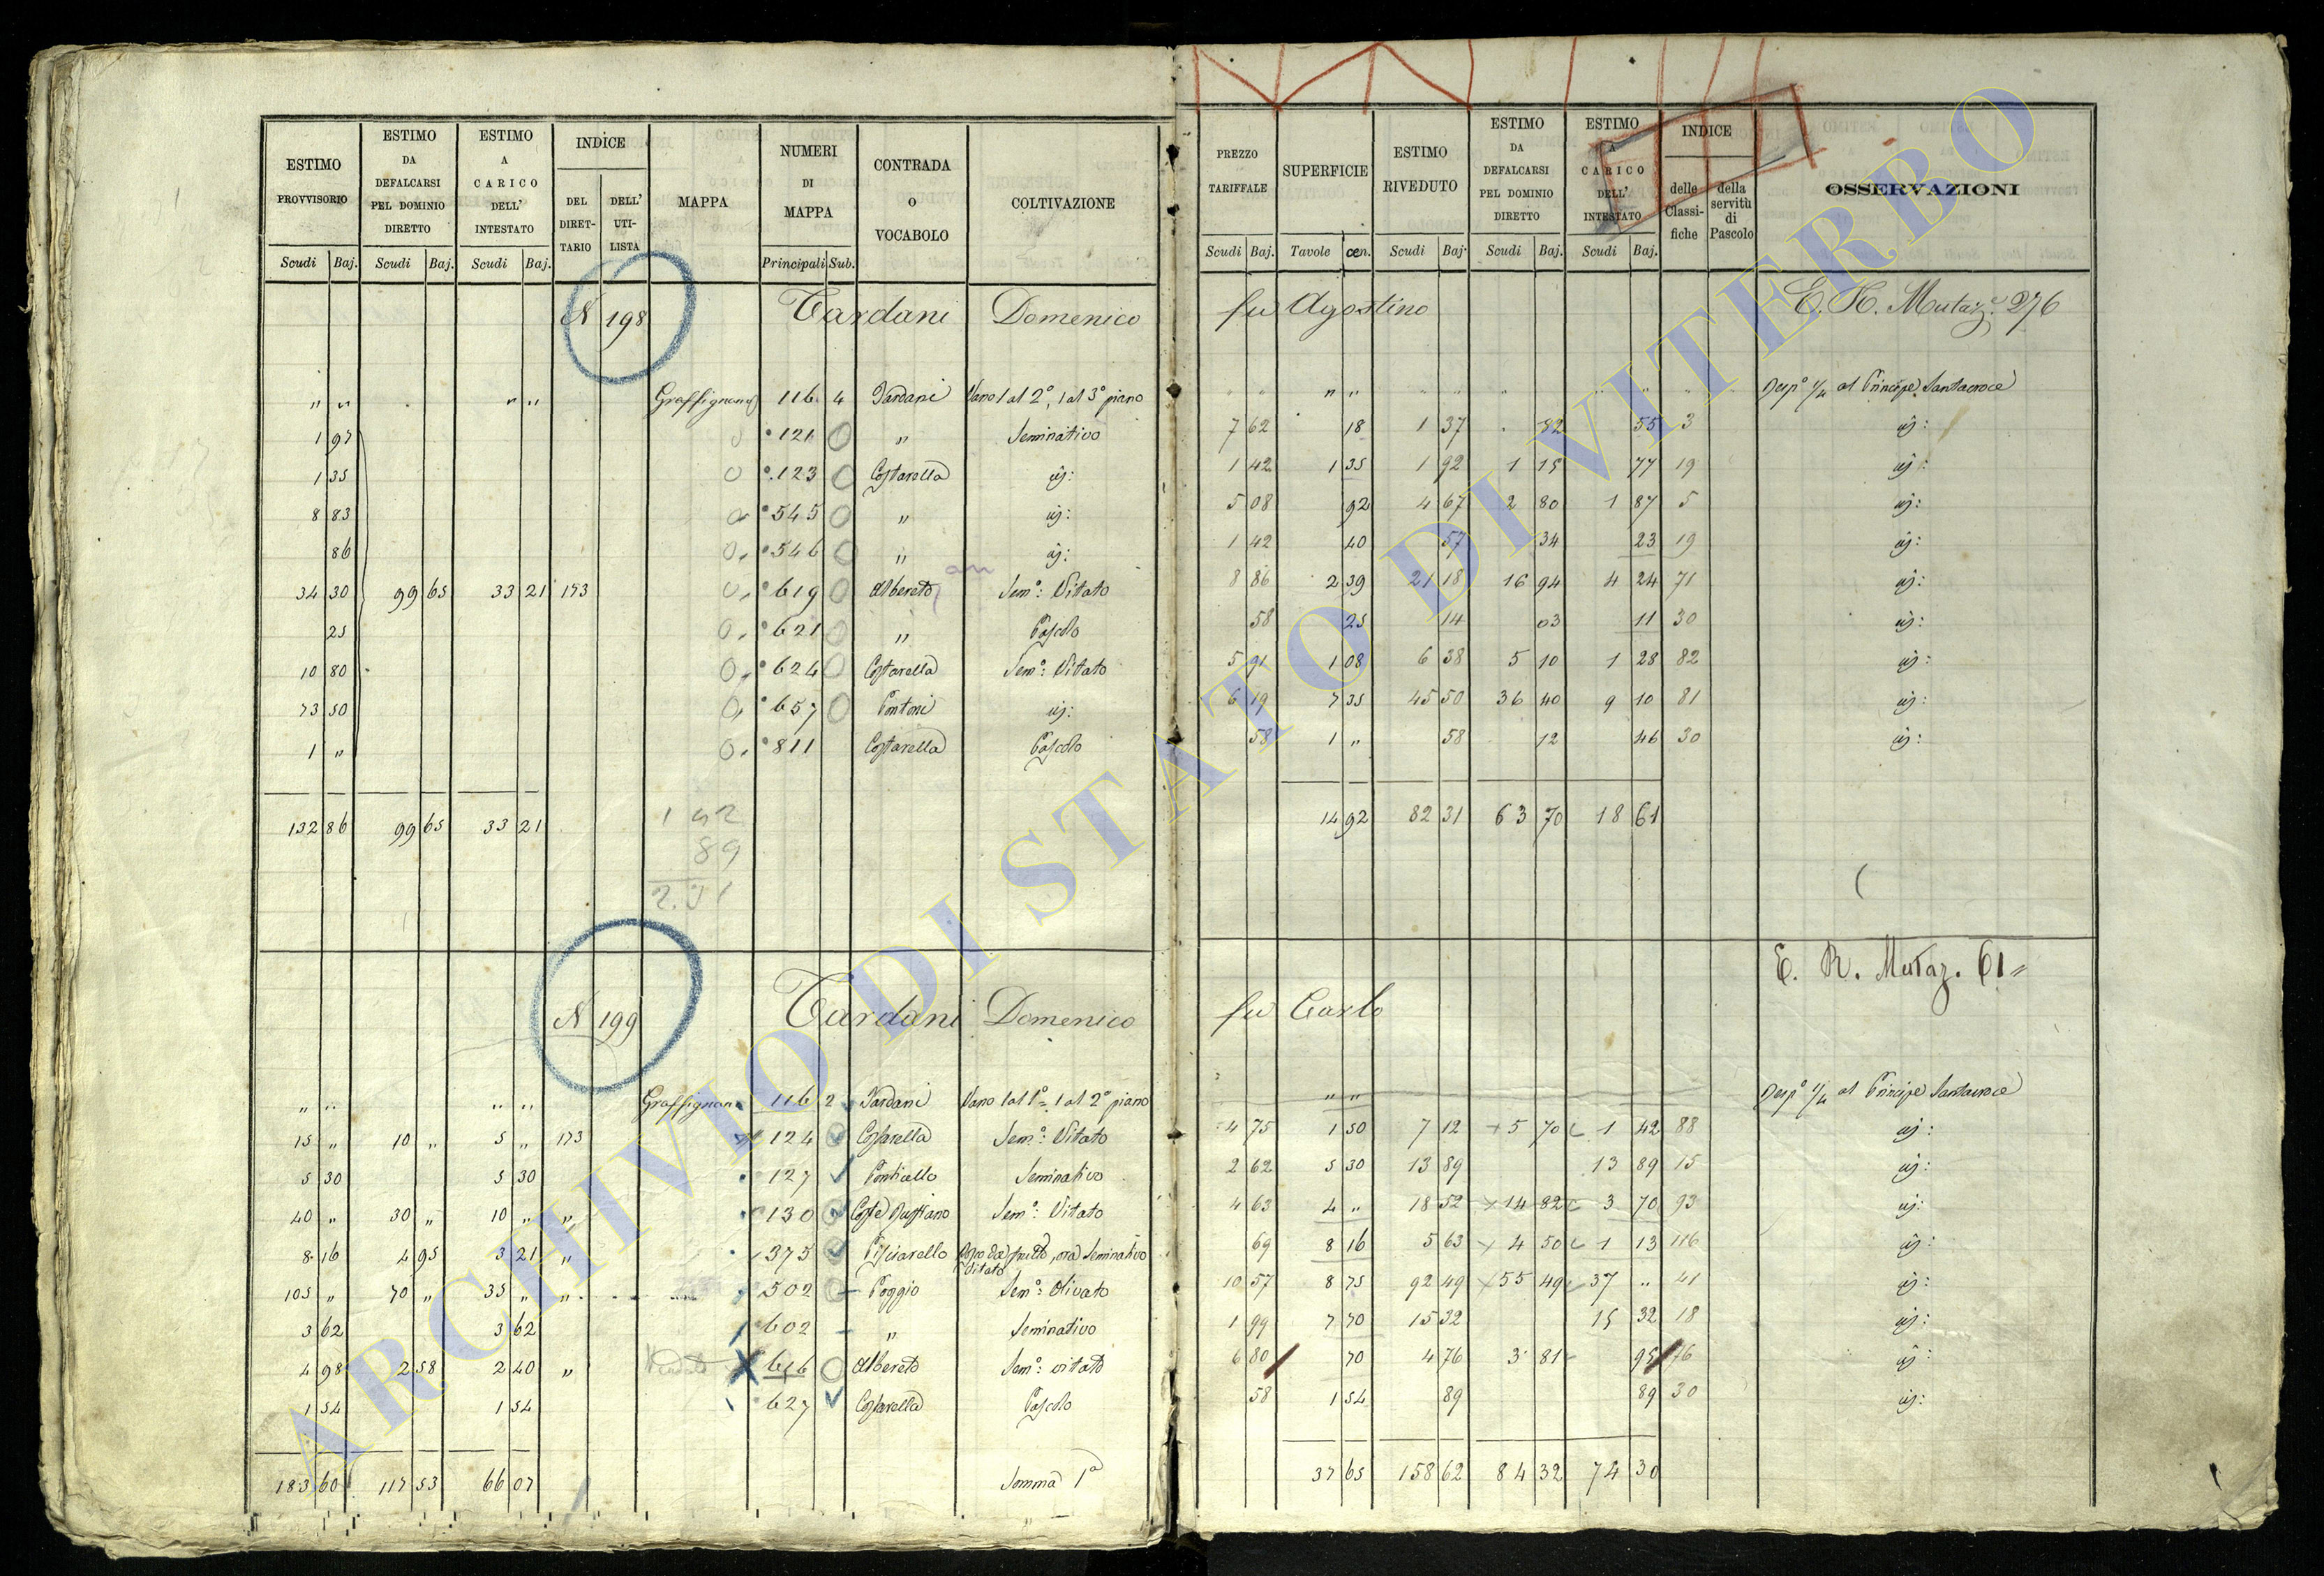 ESTIMO PROVVISORIO | ESTIMO DA DEFALCARSI PEL DOMINIO DIRETTO | ESTIMO A CARICO DELL' INTESTATO | INDICE DEL DIRETTARIO | DELL' UTILISTA | MAPPA | NUMERI DI MAPPA | CONTRADA O VOCABOLO | COLTIVAZIONE | PREZZO TARIFFALE | SUPERFICIE | ESTIMO RIVEDUTO | ESTIMO DA DEFALCARSI PEL DOMINIO DIRETTO | ESTIMO A CARICO DELL' INTESTATO | INDICE delle Classifiche | della servitù di Pascolo | OSSERVAZIONI
Scudi Baj. | Scudi Baj. | Scudi Baj. | Principali Sub. | Scudi Baj. | Tavole cen. | Scudi Baj. | Scudi Baj. | Scudi Baj.
N 198 Tardani Domenico fu Agostino E. R. Mutaz.e 276
" " " " Graffignano 116 4 Tardani Vano 1 al 2°, 1 al 3° piano " " Desp° 1/4 al Principe Santacroce
1 97 121 " Seminativo 7 62 18 1 37 82 55 3 id:
1 35 123 Costarella id: 1 42 1 35 1 92 1 15 77 19 id:
8 83 545 " id: 5 08 92 4 67 2 80 1 87 5 id:
86 546 " id: 1 42 40 57 34 23 19 id:
34 30 99 65 33 21 173 619 Albereto Sem°: Vitato 8 86 2 39 21 18 16 94 4 24 71 id:
25 621 " Pascolo 58 25 14 03 11 30 id:
10 80 624 Costarella Sem°: Vitato 5 91 1 08 6 38 5 10 1 28 82 id:
73 50 657 Pontoni id: 6 19 7 35 45 50 36 40 9 10 81 id:
1 " 811 Costarella Pascolo 58 1 " 58 12 46 30 id:
132 86 99 65 33 21 14 92 82 31 63 70 18 61
89
E. R. Mutaz. 61=
N 199 Tardani Domenico fu Carlo
" " " " Graffignano 116 2 Tardani Vano 1 al 1°, 1 al 2° piano " " Desp° 1/4 al Principe Santacroce
15 " 10 " 5 " 173 124 Costarella Sem°: Vitato 4 75 1 50 7 12 5 70 1 42 88 id:
5 30 5 30 127 Ponticello Seminativo 2 62 5 30 13 89 13 89 15 id:
40 " 30 " 10 " " 130 Sem°: Vitato 4 63 4 " 18 52 14 82 3 70 93 id:
8 16 4 95 3 21 " 375 Pisciarello ora Seminativo Vitato 69 8 16 5 63 4 50 1 13 116 id:
105 " 70 " 35 " " 502 Poggio Sem°: Olivato 10 57 8 75 92 49 55 49 37 " 41 id:
3 62 3 62 602 " Seminativo 1 99 7 70 15 32 15 32 18 id:
4 98 2 58 2 40 " 616 Albereto Sem°: vitato 6 80 70 4 76 3 81 95 76 id:
1 54 1 54 627 Costarella Pascolo 58 1 54 89 89 30 id:
183 60 117 53 66 07 Somma 1a 37 65 158 62 84 32 74 30
ARCHIVIO DI STATO DI VITERBO